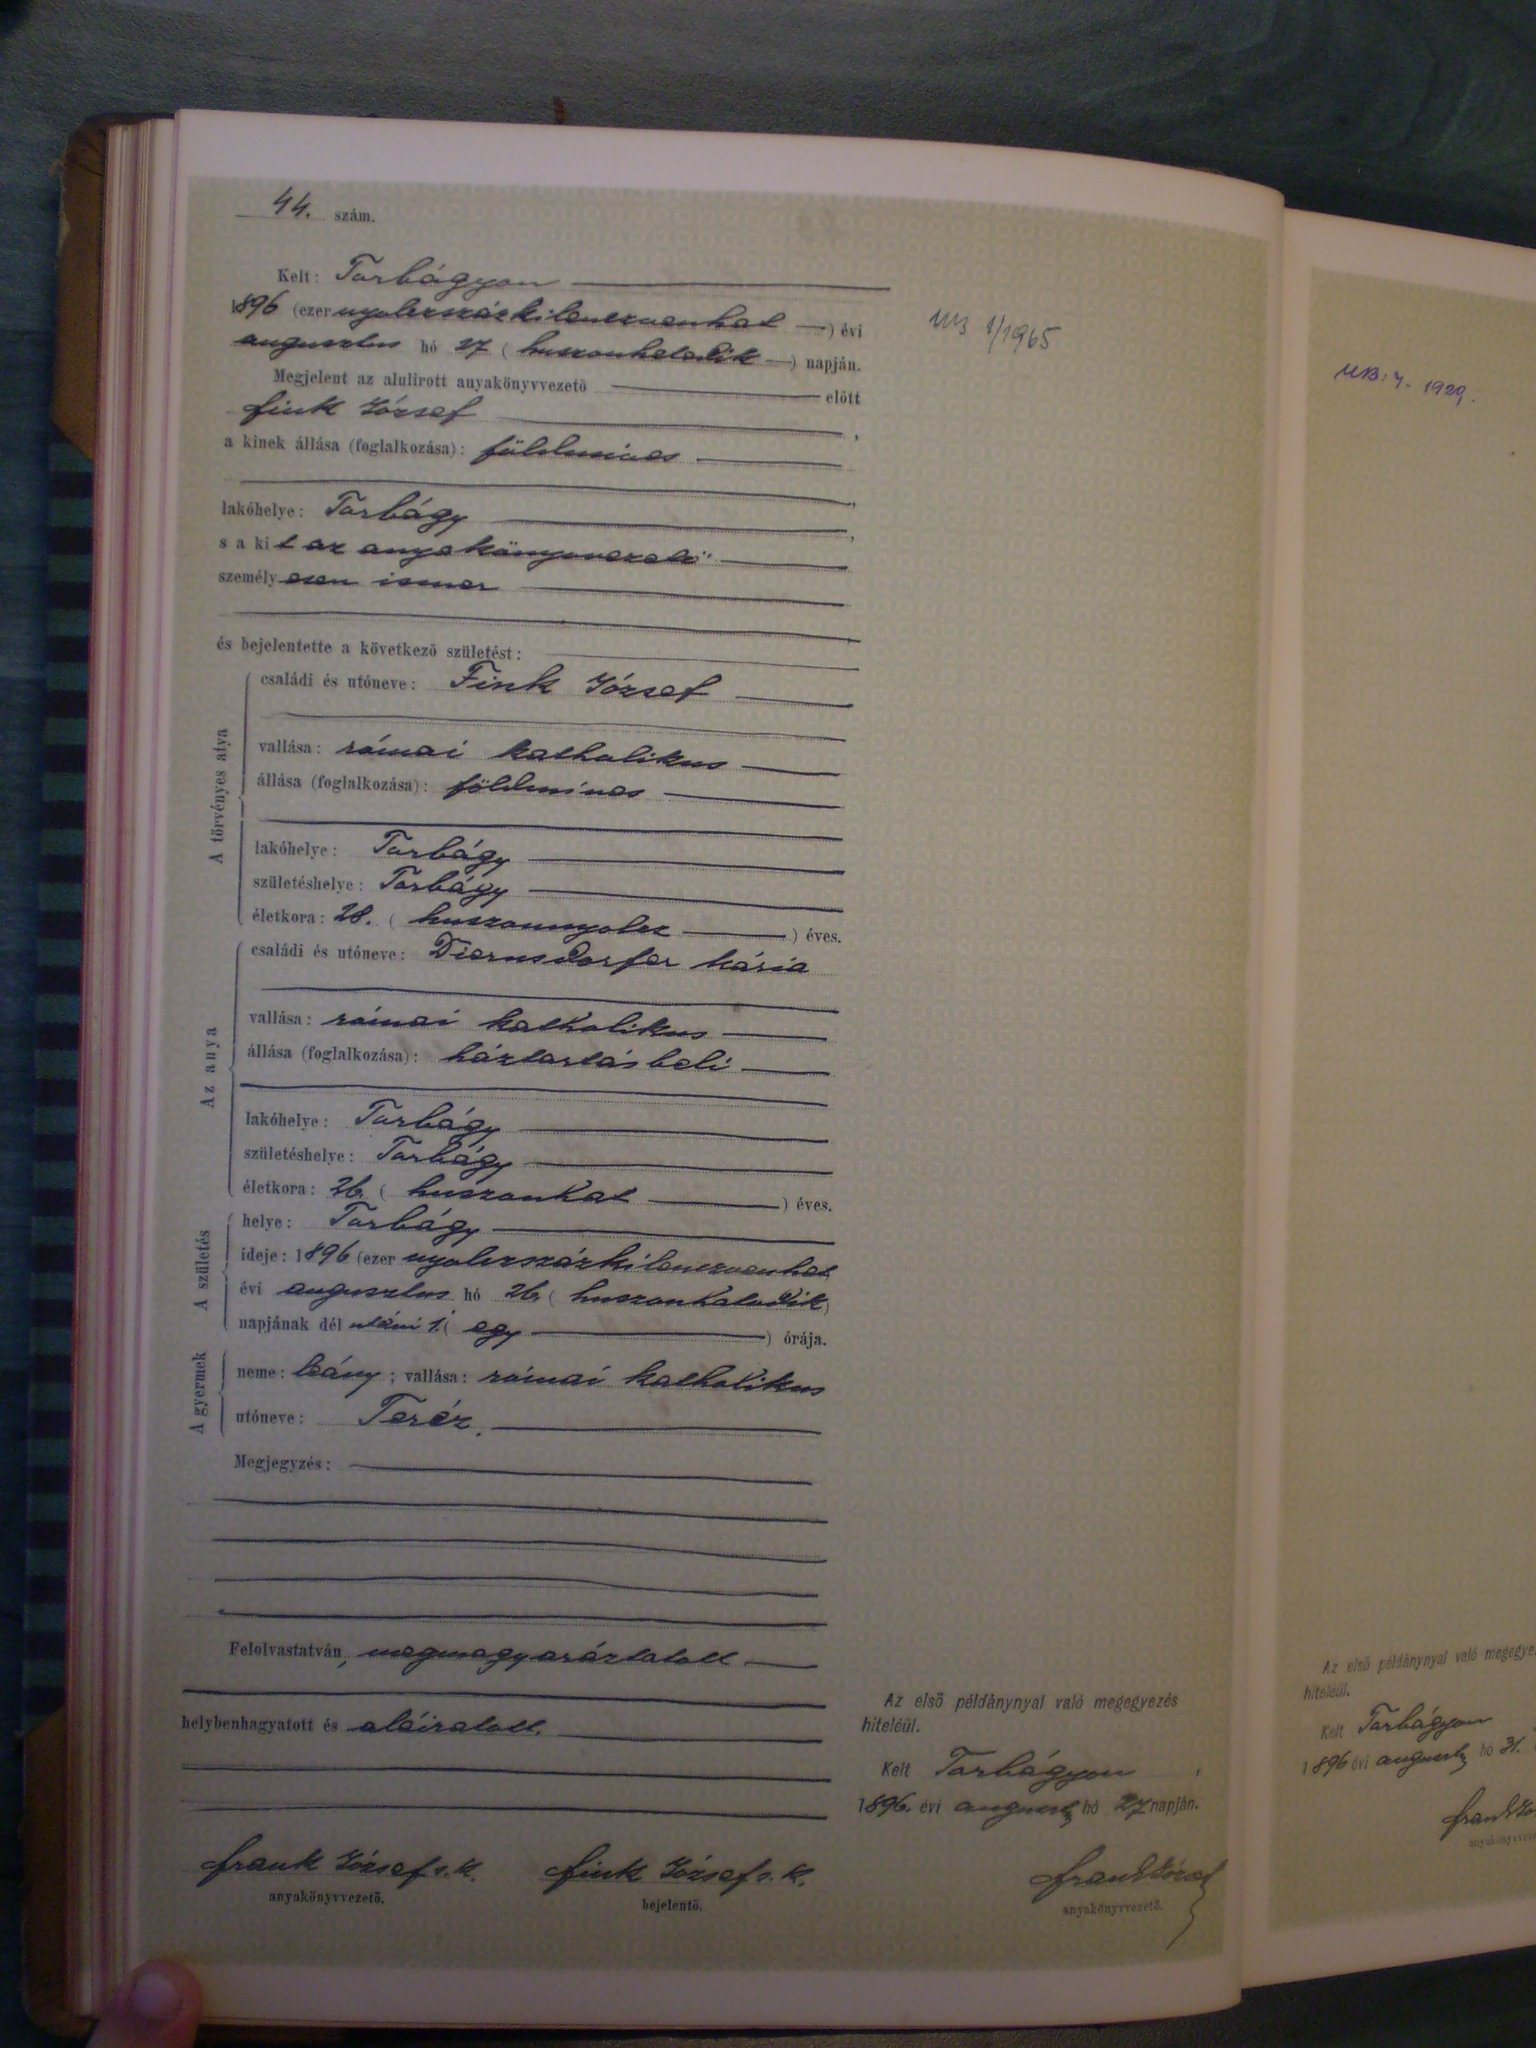 44. szám.
Kelt: Torbágyon
1896 (ezer nyolczszázkilenczvenhat) évi
augusztus hó 27 (huszonhetedik) napján.
Megjelent az alulirott anyakönyvvezető előtt
Fink József,
a kinek állása (foglalkozása): földmives,
lakóhelye: Torbágy,
s a kit az anyakönyvvezető
személyesen ismer
és bejelentette a következő születést:
A törvényes atya
családi és utóneve: Fink József
vallása: római katholikus
állása (foglalkozása): földmives
lakóhelye: Torbágy
születéshelye: Torbágy
életkora: 28. (huszonnyolcz) éves.
Az anya
családi és utóneve: Diernsdorfer Mária
vallása: római katholikus
állása (foglalkozása): háztartásbeli
lakóhelye: Torbágy
születéshelye: Torbágy
életkora: 26. (huszonhat) éves.
A születés
helye: Torbágy
ideje: 1896 (ezer nyolczszázkilenczvenhat
évi augusztus hó 26. (huszonhatodik)
napjának dél utáni 1. (egy) órája.
A gyermek
neme: leány; vallása: római katholikus
utóneve: Teréz.
Megjegyzés:
Felolvastatván, megmagyaráztatott
helybenhagyatott és aláiratott.
Frank József s. k.
anyakönyvvezető.
Fink József s. k.
bejelentő.
1/1965
Az első példánynyal való megegyezés
hiteléül.
Kelt Torbágyon,
1896. évi auguszt hó 27 napján.
Frank József
anyakönyvvezető.
1929.
Az első példánynyal való megegye
hiteléül.
Kelt Torbágyon
1896 évi auguszt hó 31.